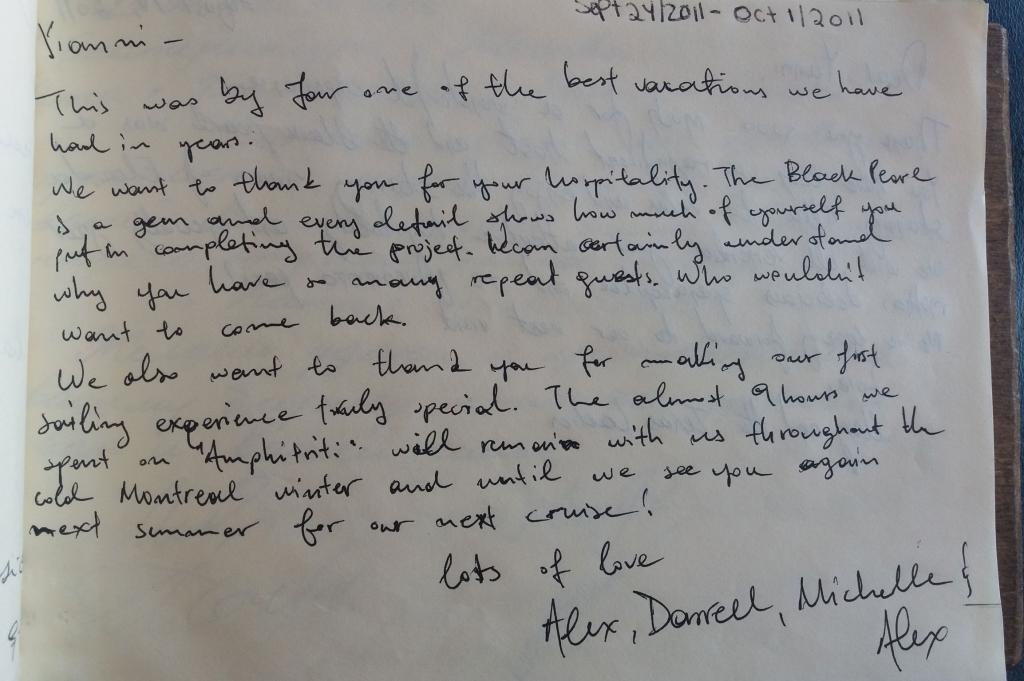 Sept 24/2011 - Oct 1/2011
Yianni -
This was by far one of the best vacations we have
had in years.
We want to thank you for your hospitality. The Black Pearl
is a gem and every detail shows how much of yourself you
put in completing the project. We can certainly understand
why you have so many repeat guests. Who wouldn't
want to come back.
We also want to thank you for making our first
sailing experience truly special. The almost 9 hours we
spent on "Amphitriti" will remain with us throughout the
cold Montreal winter and until we see you again
next summer for our next cruise!
lots of love
Alex, Darrell, Michelle &
Alex